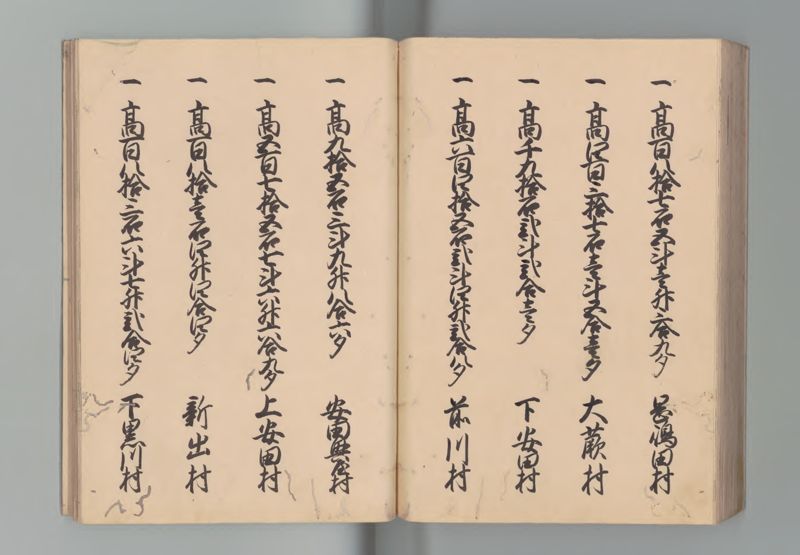 一 高百八拾七石五斗壱升六合九夕 嶋田村
一 高四百三拾七石壱斗五合壱夕 大蕨村
一 高千九拾石弐斗弐合壱夕 下安田村
一 高六百四拾五石弐斗四升弐合八夕 前川村
一 高九拾五石三斗九升八合六夕 安田興屋村
一 高五百七拾五石七斗六升六合九夕 上安田村
一 高百八拾壱石四升四合四夕 新出村
一 高百八拾三石六斗七升弐合四夕 下黒川村